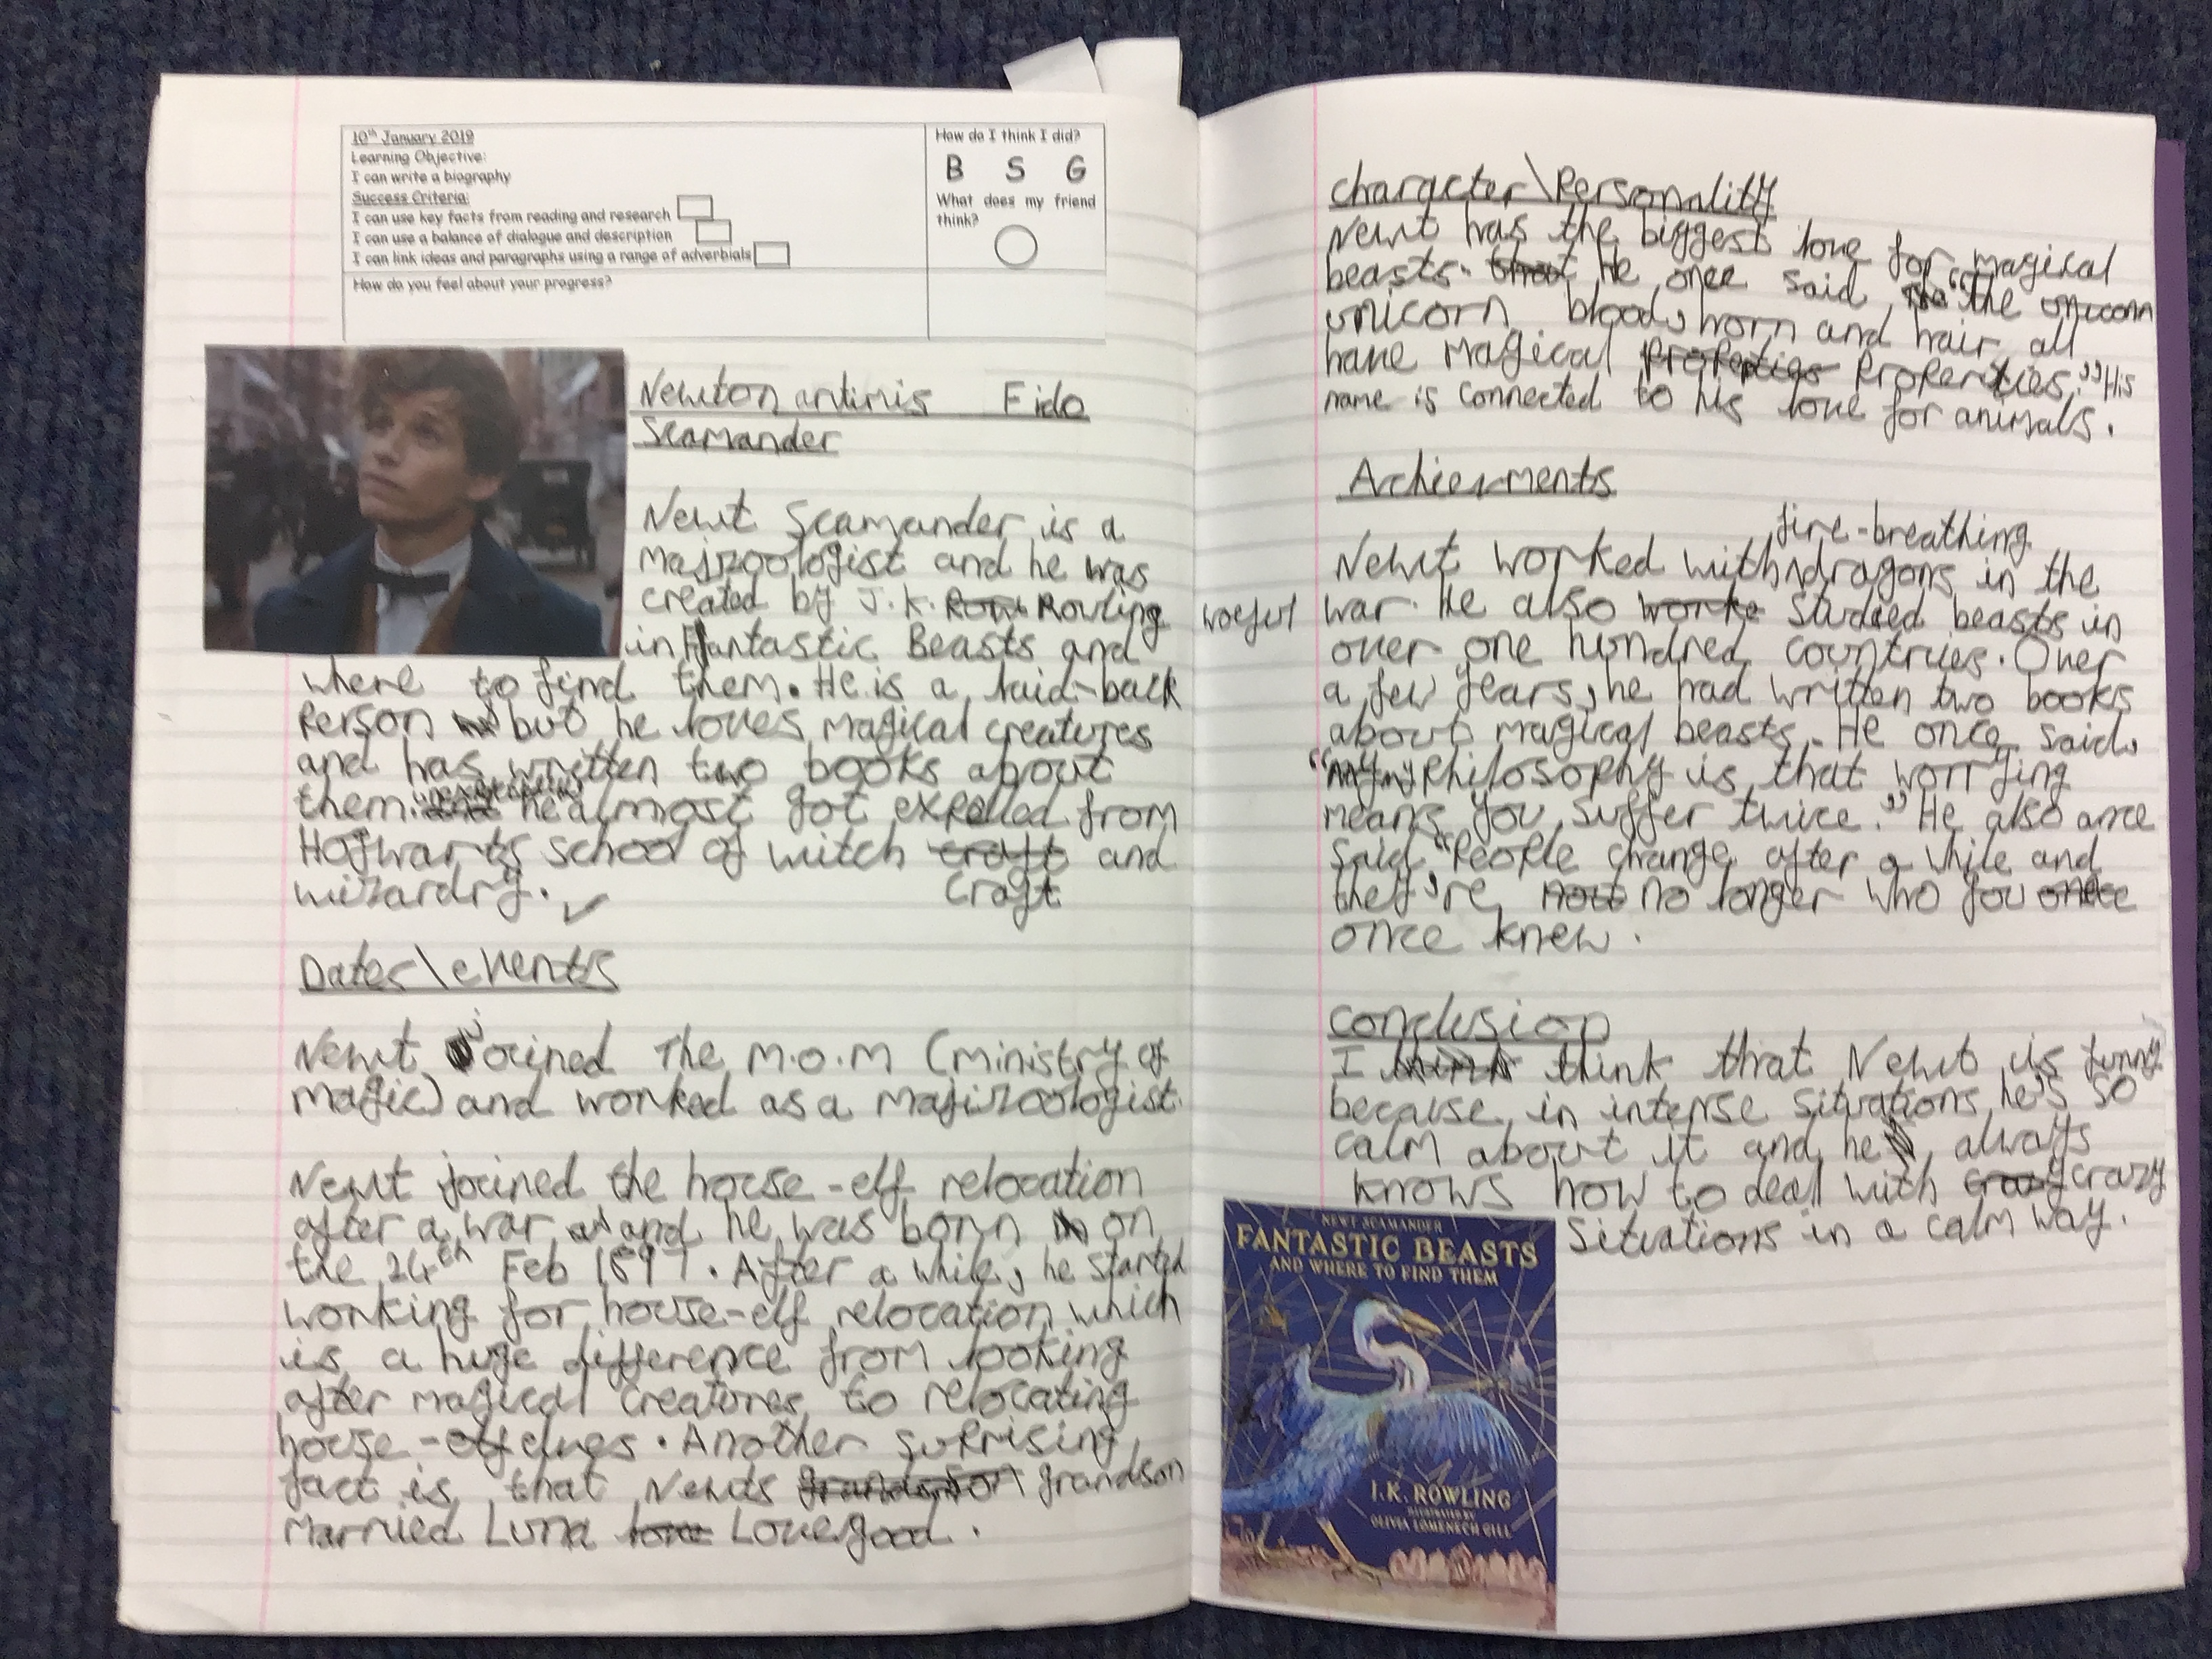 10th January 2019
Learning Objective:
I can write a biography
Success Criteria:
I can use key facts from reading and research
I can use a balance of dialogue and description
I can link ideas and paragraphs using a range of adverbials
How do you feel about your progress?
How do I think I did?
B S G
What does my friend
think?
Newton artimis Fido
Scamander
Newt Scamander is a
majizoologist and he was
created by J.K. Rowling
in Fantastic Beasts and
where to find them. He is a laid-back
Person but he loves magical creatures
and has written two books about
them. unexpectedly he almost got expelled from
Hogwarts school of witch craft and
wizardry.
Dates\events
Newt joined The M.O.M (ministry of
magic) and worked as a majizoologist.
Newt joined the house-elf relocation
after a war and he was born on
the 24th Feb 1897. After a while, he started
working for house-elf relocation which
is a huge difference from looking
after magical creatures to relocating
house-elves. Another suprising
fact is that Newts grandson
married Luna Lovegood.
character\Personality
Newt has the biggest love for magical
beasts. He once said "the
unicorn blood, horn and hair all
have magical Properties." His
name is connected to his love for animals.
Achievments
Newt worked with fire-breathing dragons in the
woeful war. He also studied beasts in
over one hundred countries. Over
a few years, he had written two books
about magical beasts. He once said,
"my Philosophy is that worrying
means you suffer twice." He also once
said "People change after a while and
they're no longer who you
once knew.
conclusion
I think that Newt is funny
because in intense situations, he's so
calm about it and he always
knows how to deal with crazy
situations in a calm way.
NEWT SCAMANDER
FANTASTIC BEASTS
AND WHERE TO FIND THEM
J.K. ROWLING
ILLUSTRATED BY
OLIVIA LOMENECH GILL